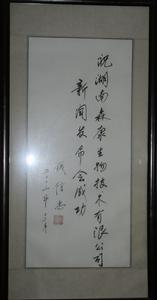 祝湖南森康生物技术有限公司
新闻发布会成功
钱信忠